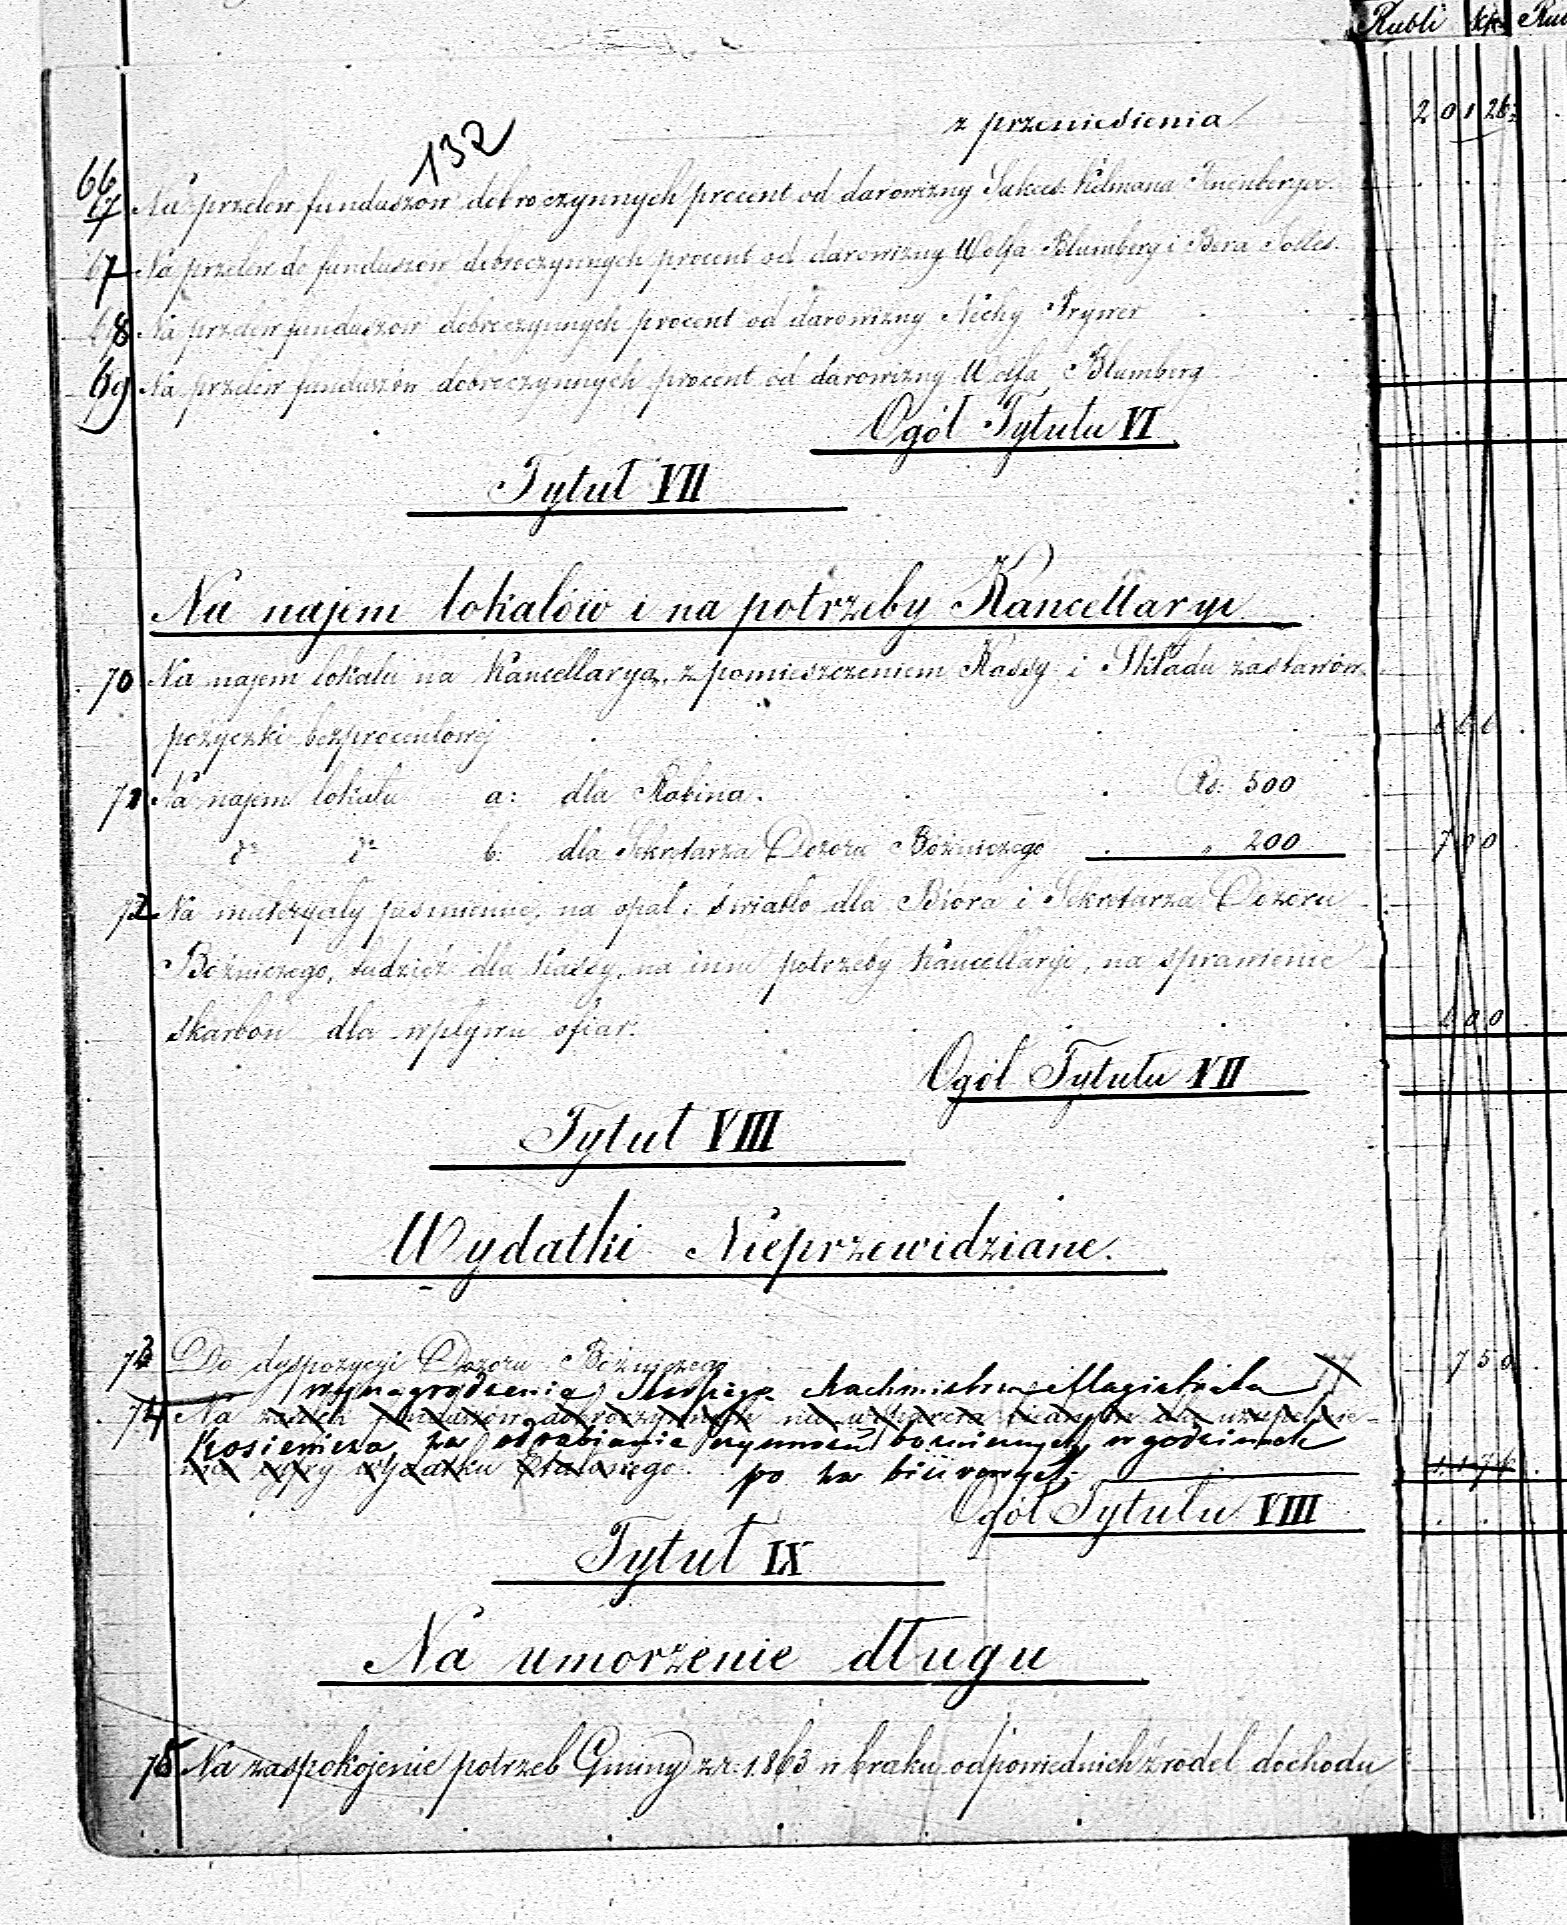 Rubli kp. Rub
z przeniesienia 201 26
132
66 Na przelew funduszów dobroczynnych procent od darowizny Sukces.
67 Na przelew do funduszów dobroczynnych procent od darowizny Wolfa Blumberg i Bera
68 Na przelew funduszów dobroczynnych procent od darowizny Nechy Frywer
69 Na przelew funduszów dobroczynnych procent od darowizny Wolfa Blumberg
Ogół Tytułu VI
Tytuł VII
Na najem lokalów i na potrzeby Kancellaryi
70 Na najem lokalu na Kancellaryą, z pomieszczeniem Kassy i Składu zastawów
pożyczki bezprocentowej
71 Na najem lokalu a: dla Rabina. Rs: 500
dº dº b: dla Sekretarza Dozoru Bóżniczego „ 200 700
72 Na materyały piśmienne, na opał i światło dla Bióra i Sekretarza Dozoru
Bóżniczego, tudzież dla Kassy, na inne potrzeby Kancellaryi, na sprawienie
skarbon dla wpływu ofiar.
Ogół Tytułu VII
Tytuł VIII
Wydatki Nieprzewidziane.
73 Do dyspozycyi Dozoru Bóżniczego 750
wynagrodzenie Starszego Rachmistrza Magistratu
74 Na zasiłek funduszów dobroczynnych na wsparcia
za odrabianie czynności bożniczych w godzinach
cyfry wydatku etatowego. po za biurowych. 1176
Ogół Tytułu VIII
Tytuł IX
Na umorzenie długu
75 Na zaspokojenie potrzeb Gminy z r: 1863 w braku odpowiednich źrodeł dochodu